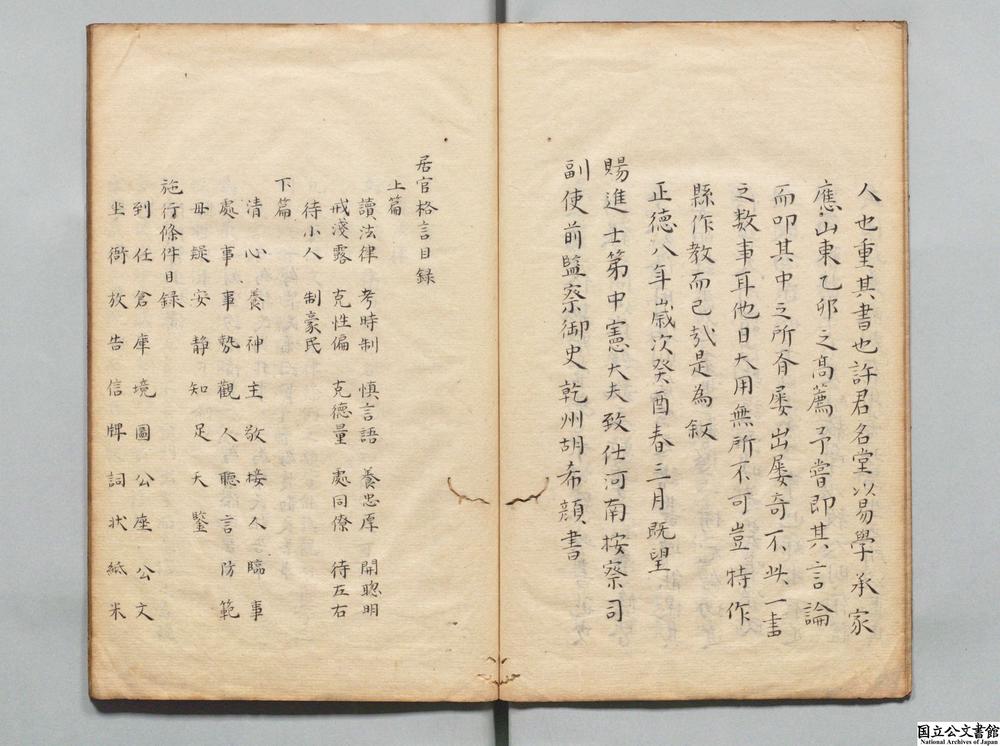 人也重其書也許君名堂以易學承家
應山東乙卯之髙薦予嘗即其言論
而叩其中之所有屡出屡奇不此一書
之数事耳他日大用無所不可豈特作
縣作教而已㢤是為叙
正德八年歲次癸酉春三月既望
賜進士第中憲大夫致仕河南按察司
副使前監察御史乾州胡希顔書
居官格言目録
上篇
讀法律 考時制 慎言語 養忠厚 開聰明
戒淺露 克性偏 克德量 處同僚 待左右
待小人 制豪民
下篇
清心 養神 主敬 接人 臨事
處事 事勢 觀人 聽言 防範
毋疑 安靜 知足 天鑒
施行條件目録
到任 倉庫 境圖 公座 公文
坐衙 放告 信牌 詞状 紙米
国立公文書館
National Archives of Japan